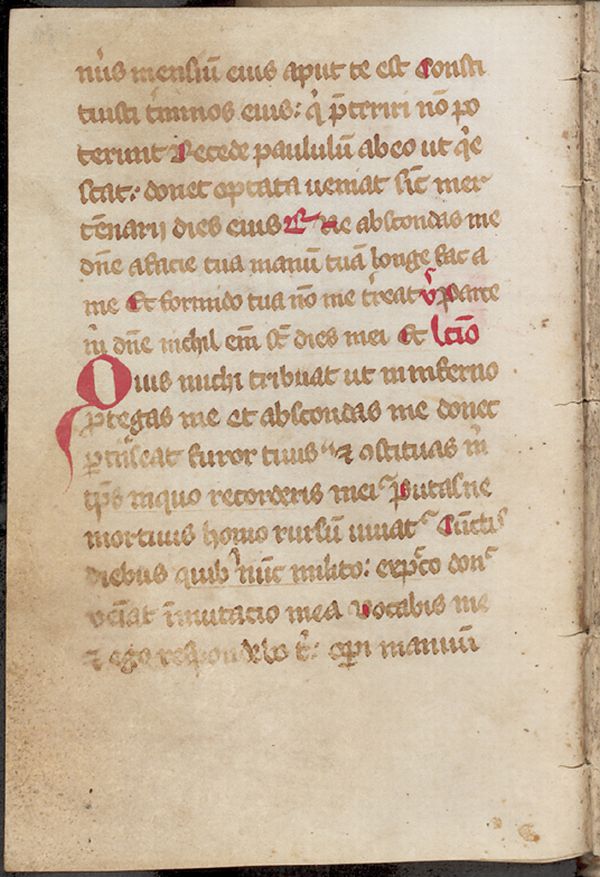 nūs mensiū eius aput te est Consti
tuisti t̄minos eius: q̄ p̄teriri nō po
terunt Recede paululū ab eo ut q̄e
scat: donec optata ueniat sic̄ mer
cēnarij dies eius ℟ Ne abscondas me
dn̄e a facie tua manū tuā longe fac a
me Et formido tua nō me t̄reat ℣ Parce
m̄ dn̄e nichil em̄ st̄ dies mei Et lc̄io
Quis michi tribuat ut in inferno
ꝓtegas me et abscondas me donec
ꝑtn̄seat furor tuus ⁊ ꝯstituas m̄
tp̄s in quo recorderis mei Putasne
mortuus homo rursū uiuat Cūctis
diebus quib' nūc milito: exp̄co don̄
ueīat īmutacio mea Vocabis me
⁊ ego respondebo t̄: oꝑi manuū